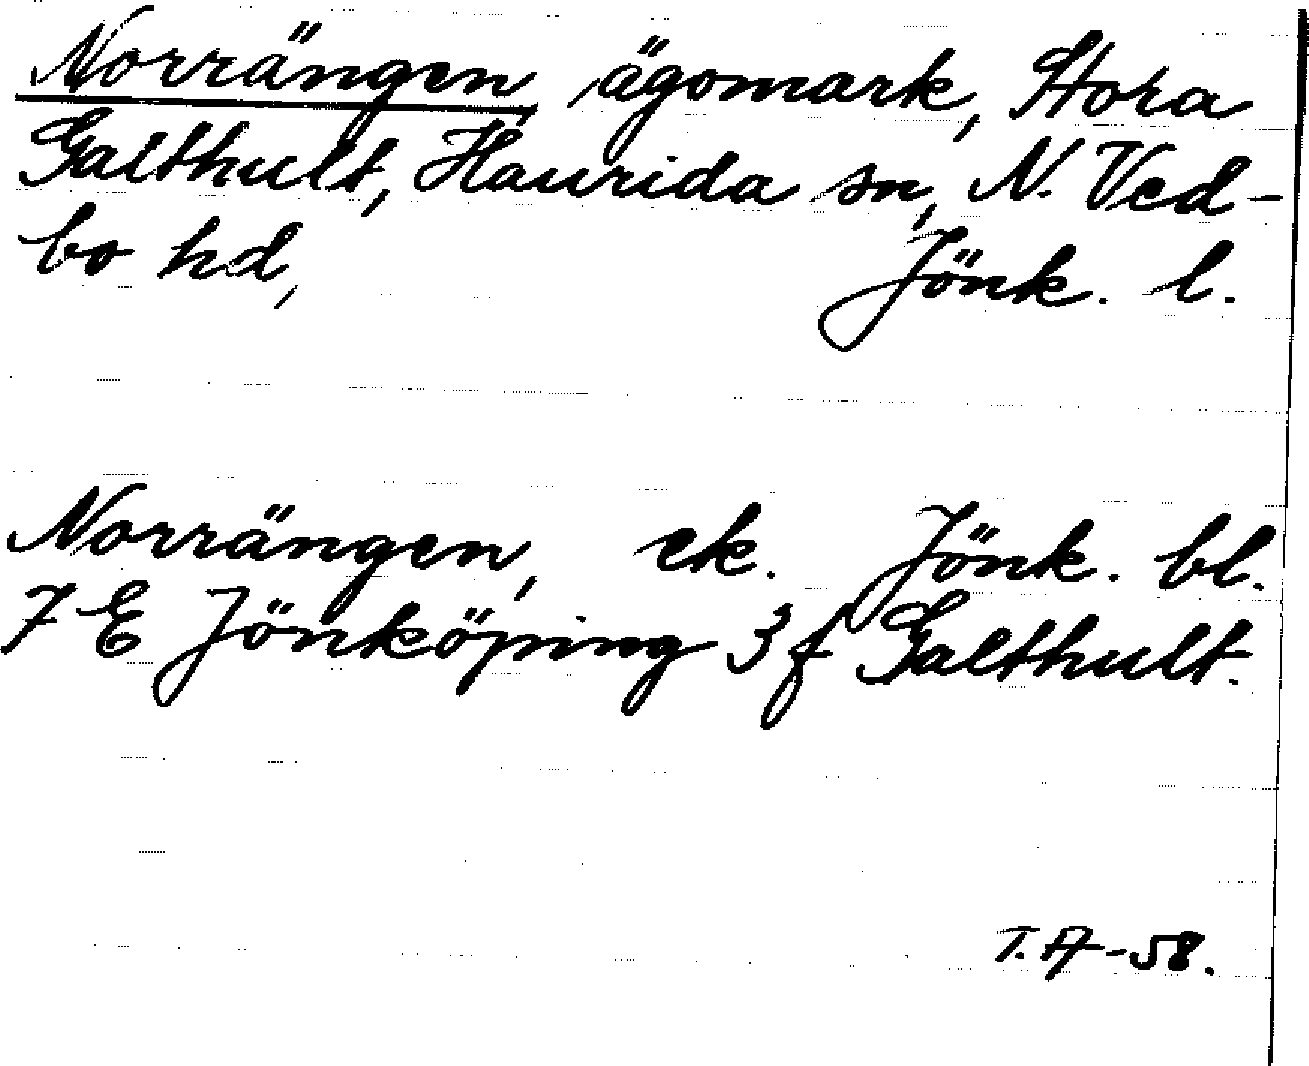 Norrängen, ägomark, Stora
Galthult, Haurida sn, N. Ved-
bo hd, Jönk. l.
Norrängen, ek. Jönk. bl.
7 E Jönköping 3 f Galthult.
T. A-58.